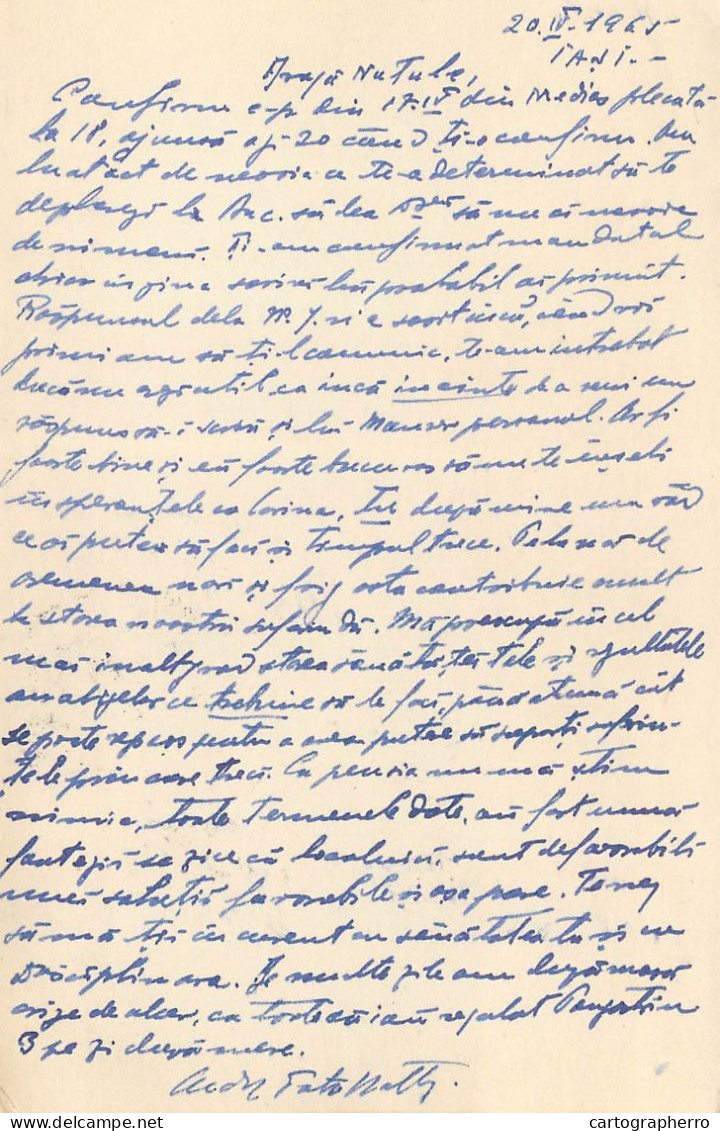 20.IV.1965
IAȘI.-
Dragă Natule,
Confirm c-p din 17.IV din Mediaș plecată
la 18, ajunsă azi 20 când ți-o confirm. Am
luat act de nevoia ce te-a determinat să te
deplasezi la Buc. să dea D-zeu să nu ai nevoie
de nimeni. Ți-am confirmat mandatul
chiar în ziua sosirii lui probabil ai primit.
Răspunsul dela M. J. nu a sosit încă, când voi
primi am să ți-l comunic, te-am întrebat
dacă nu e util ca încă înainte de a veni un
răspuns să-i scriu și lui personal. Ar fi
foarte bine și eu foarte bucuros să nu te înșeli
în speranțele cu Corina, tu după mine nu văd
ce ai putea să faci și timpul trece. Pela noi de
asemenea nori și frig asta contribuie mult
la starea noastră Mă preocupă în cel
mai înalt grad starea sănătății tele și rezultatele
analizelor ce trebuie să le faci, până atunci cât
se poate repaos pentru a avea putere să suporți suferin-
țele prin care treci. Cu pensia nu mai știm
nimic, toate termenele date, au fost numai
fantezii se zice că localnicii sunt defavorabili
unei soluții favorabile și așa pare. Te rog
să mă ții în curent cu sănătatea ta și cu
disciplinara. De multe zile am după masă
crize de ulcer, cu toate că iau regulat
3 pe zi după mese.